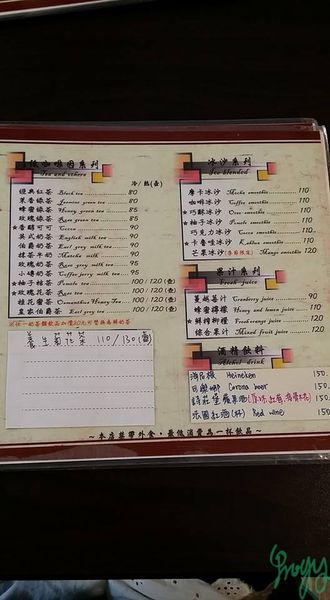 低咖啡因系列
Tea and others
冷/熱(壺)
經典紅茶 Black tea 80
茉香綠茶 Jasmine green tea 80
蜂蜜綠茶 Honey green tea 85
玫瑰綠茶 Rose green tea 85
★香醇可可 Cocoa 90
英式奶茶 English milk tea 90
伯爵奶茶 Earl grey milk tea 90
抹茶牛奶 Matcha milk 90
玫瑰奶茶 Rose grey milk tea 90
小磚奶茶 Coffee jerry milk tea 95
★柚子桂茶 Pomelo tea 100/120(壺)
玫瑰花茶 Rose tea 100/120(壺)
桂花蜜茶 Osmanthus Honey Tea 100/120(壺)
皇家伯爵 Earl grey tea 100/120(壺)
養生菊花茶 110/130(壺)
冰沙系列
Ice blended
摩卡冰沙 Mocha smoothie 110
咖啡冰沙 Coffee smoothie 110
★巧酥冰沙 Oreo smoothie 110
★柚子冰沙 Pomelo smoothie 110
巧克力冰沙 Cocoa smoothie 110
★卡魯哇冰沙 Kahlua smoothie 110
芒果冰沙(季節限定) Mango smoothie 120
果汁系列
Fresh juice
蔓越莓汁 Cranberry juice 90
蜂蜜檸檬 Honey and lemon juice 110
★鮮搾柳橙 Fresh orange juice 120
綜合果汁 Mixed fruit juice 120
酒精飲料
Alcohol drink
海尼根 Heineken 150.
可樂娜 Corona beer 150.
詩莊堡蘋果酒 150.
法國紅酒(杯) Red wine 150.
~本店禁帶外食,最低消費為一杯飲品~